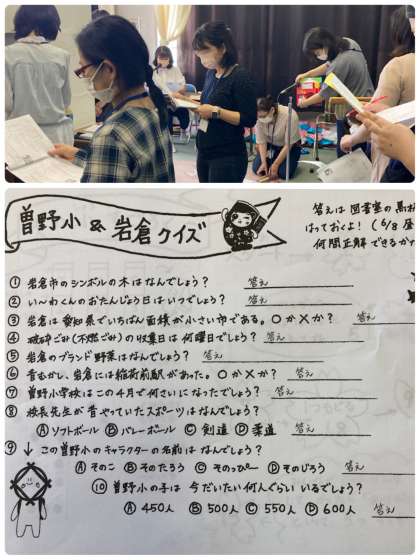 曽野小 & 岩倉クイズ
答えは 図書室の
はっておくよ！(6/8 昼
何問正解できるか
① 岩倉市のシンボルの木はなんでしょう？ 答え
② い〜わくんのおたんじょう日はいつでしょう？ 答え
③ 岩倉は愛知県でいちばん面積が小さい市である。○か×か？ 答え
④ 破砕ごみ(不燃ごみ)の収集日は何曜日でしょう？ 答え
⑤ 岩倉のブランド野菜はなんでしょう？ 答え
⑥ 昔むかし、岩倉には稲荷前駅があった。○か×か？ 答え
⑦ 曽野小学校はこの4月で何さいになったでしょう？ 答え
⑧ 校長先生が昔やっていたスポーツはなんでしょう？
Ⓐソフトボール Ⓑバレーボール Ⓒ剣道 Ⓓ柔道 答え
⑨ ↓ この曽野小のキャラクターの名前はなんでしょう？
Ⓐそのこ Ⓑそのたろう Ⓒそのっぴー Ⓓそのじろう 答え
⑩ 曽野小の子は今だいたい何人ぐらいいるでしょう？
Ⓐ450人 Ⓑ500人 Ⓒ550人 Ⓓ600人 答え